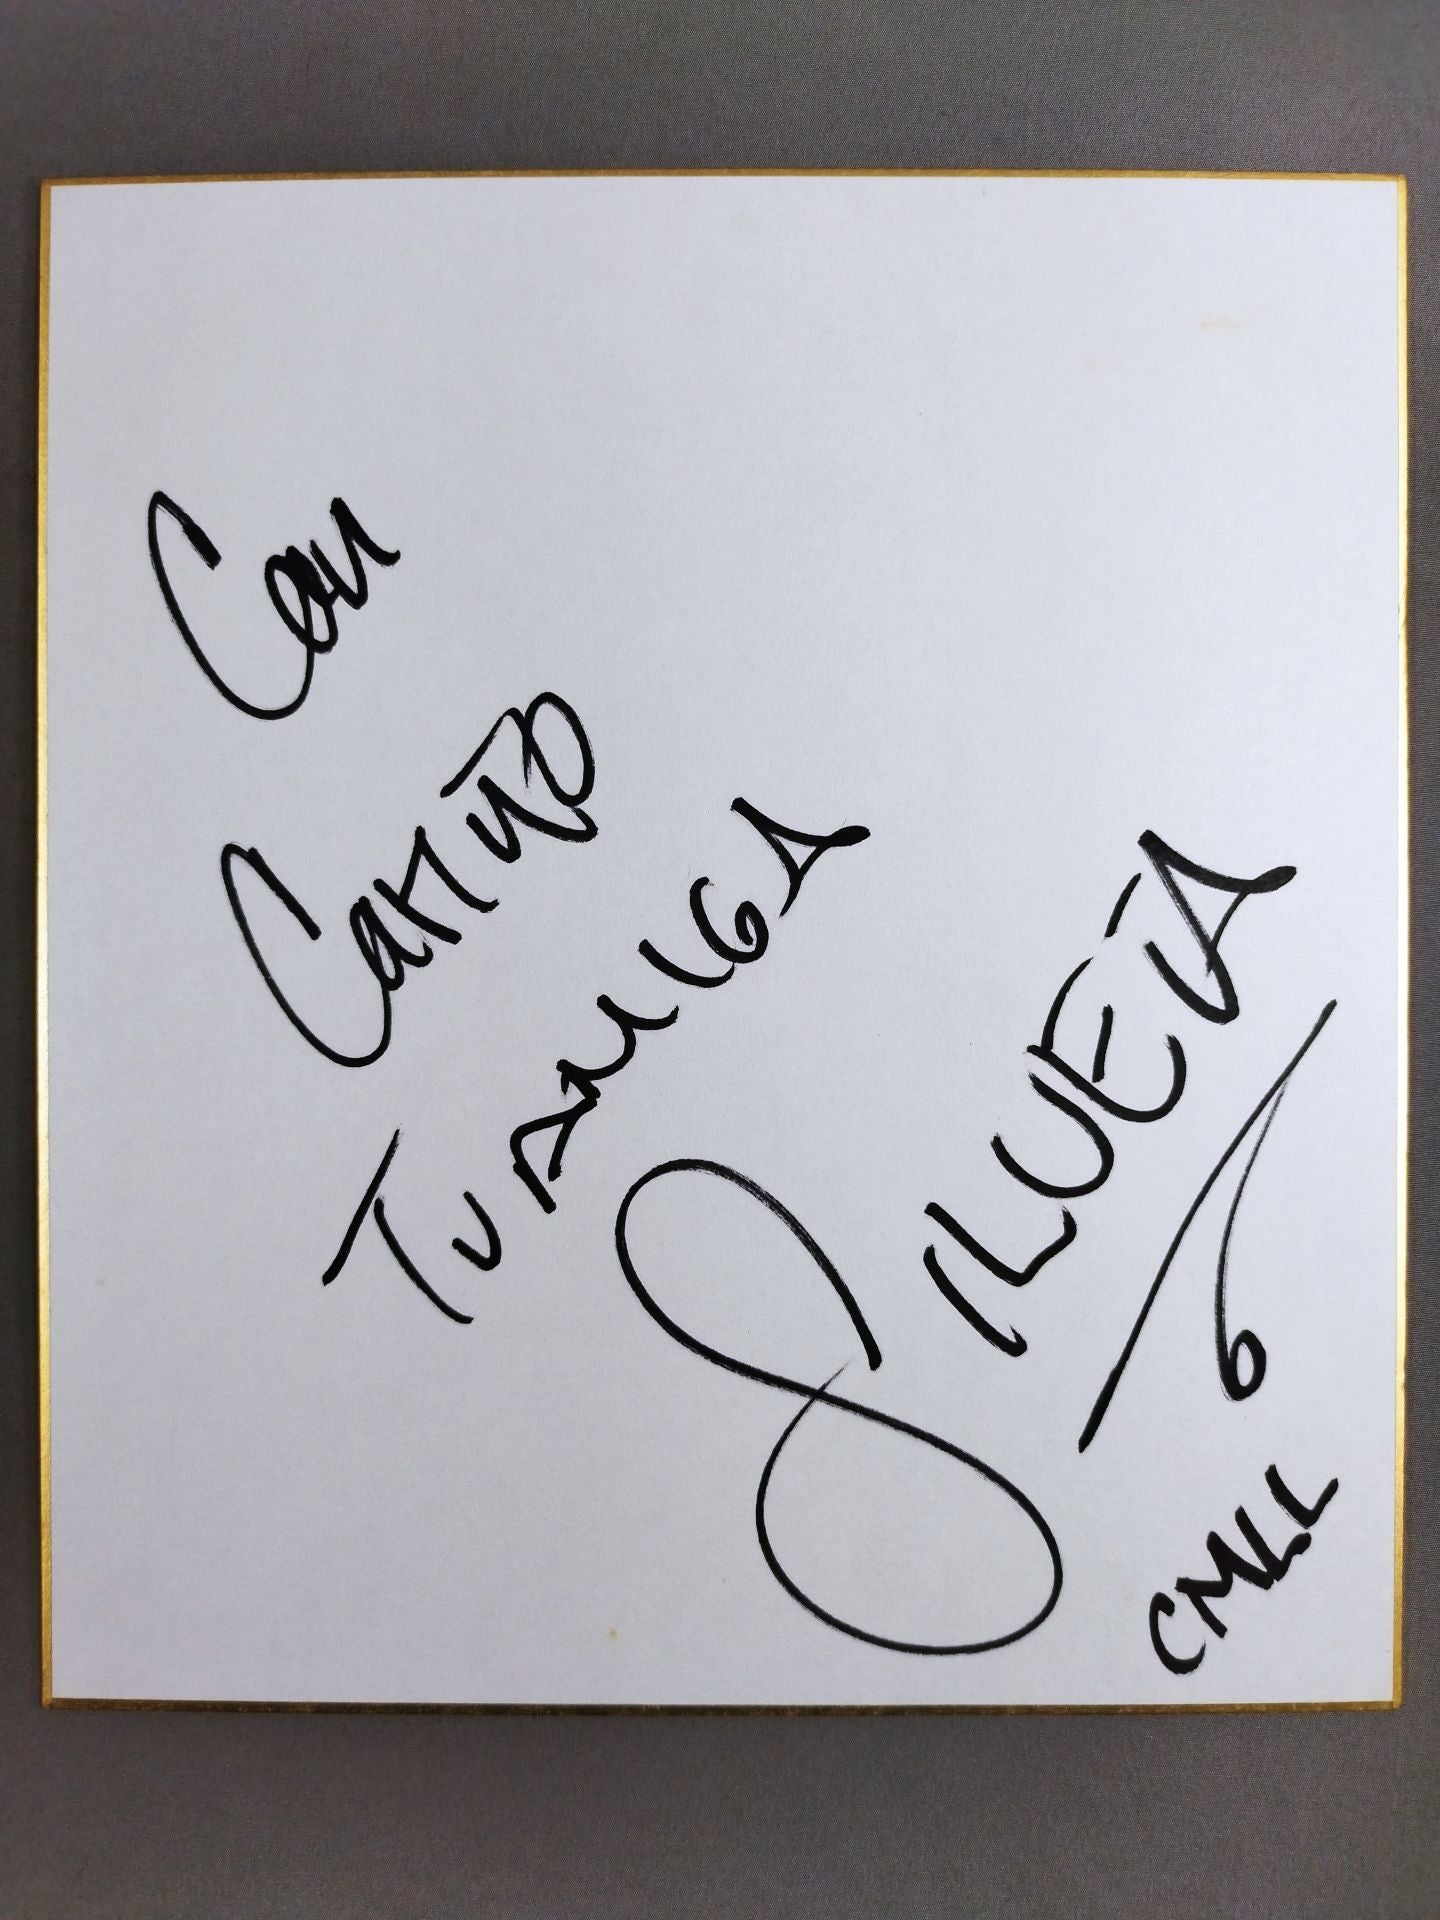 Con
Cariño
Tu amiga
Silueta
CMLL